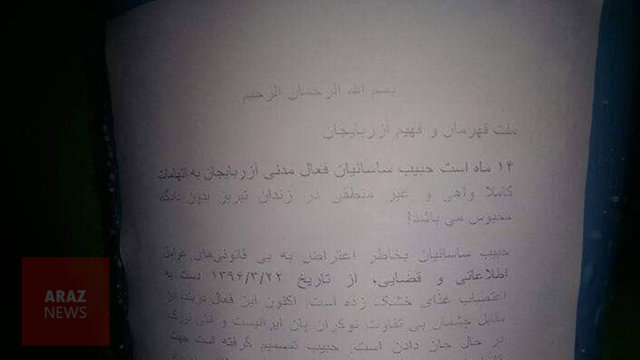 بسم الله الرحمان الرحیم
ملت قهرمان و فهیم آزربایجان
۱۴ ماه است حبیب ساسانیان فعال مدنی آزربایجان به اتهامات
کاملا واهی و غیر منطقی در زندان تبریز بدون دادگاه
محبوس می باشد!
حبیب ساسانیان بخاطر اعتراض به بی قانونی‌های عوامل
اطلاعاتی و قضایی، از تاریخ ۱۳۹۶/۳/۲۲ دست به
اعتصاب غذای خشک زده است. اکنون این فعال دربند، در
مقابل چشمان بی تفاوت نوکران پان ایرانیست و
در حال جان دادن است. حبیب تصمیم گرفته است جهت
ARAZ
NEWS